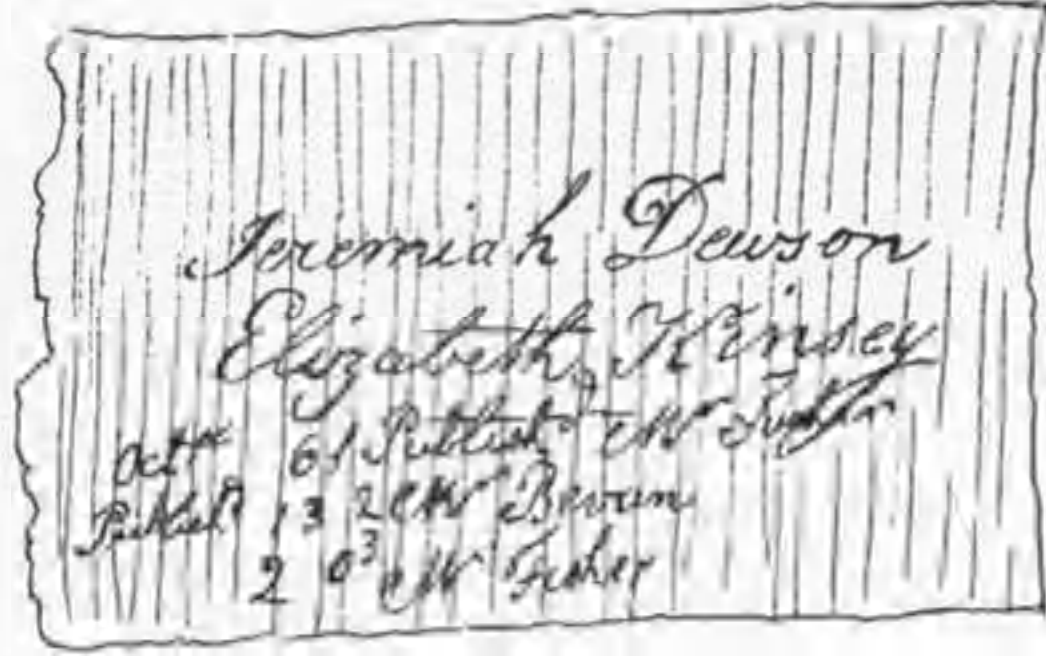 Jeremiah Dewson
Elizabeth Kinsey
Oct 6 1 Publish.d Mr
Publish.d 13 2 Mr Bevan
20 3 Mr Fisher